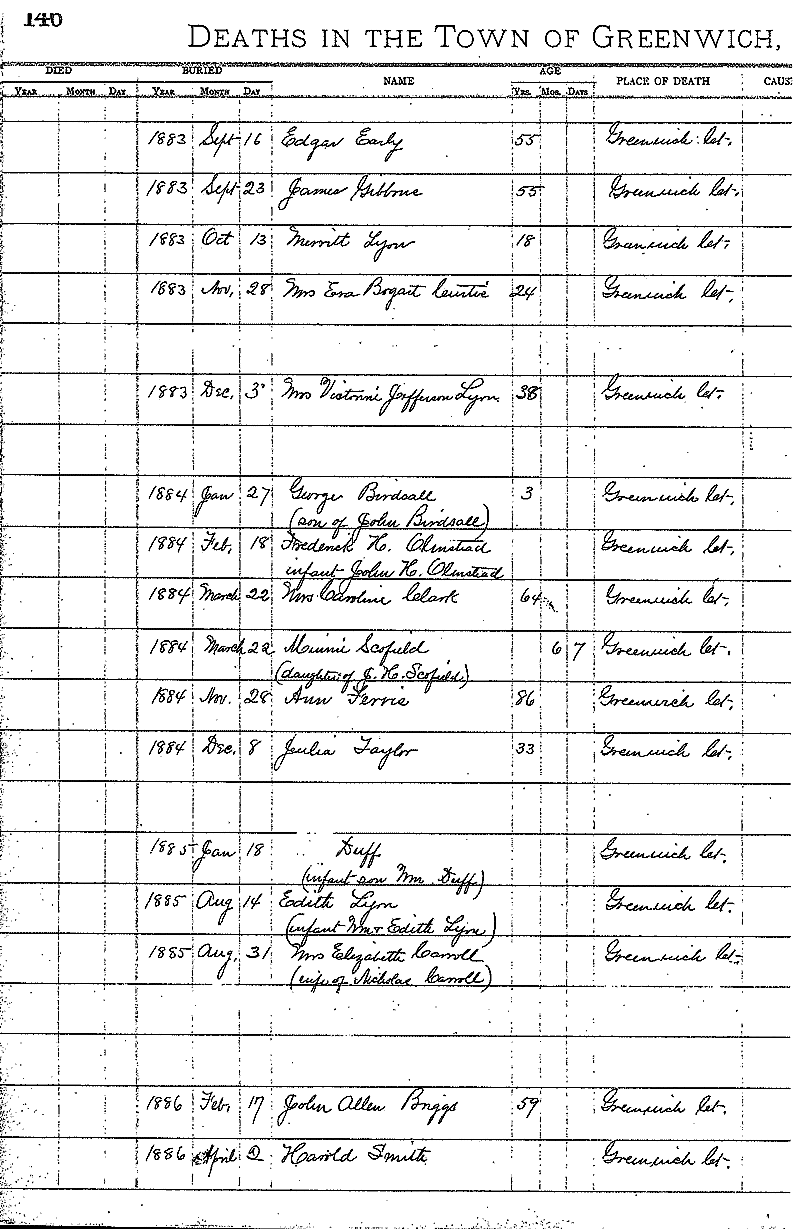 140
DEATHS IN THE TOWN OF GREENWICH,
DIED BURIED NAME AGE PLACE OF DEATH CAUS
YEAR MONTH DAY YEAR MONTH DAY YRS. MOS. DAYS
1883 Sept 16 Edgar Early 55 Greenwich Ct.
1883 Sept 23 James Gibbons 55 Greenwich Ct.
1883 Oct 13 Merritt Lyon 18 Greenwich Ct.
1883 Nov. 28 Mrs Eva Bogart 24 Greenwich Ct.
1883 Dec. 3 Mrs Jefferson Lyon 38 Greenwich Ct.
1884 Jan 27 George Birdsall 3 Greenwich Ct.
(son of John Birdsall)
1884 Feb. 18 Frederick H. Olmstead Greenwich Ct.
infant John H. Olmstead
1884 March 22 Mrs Caroline Clark 64 Greenwich Ct.
1884 March 22 Minnie Scofield 6 7 Greenwich Ct.
(daughter of J. H. Scofield)
1884 Nov. 28 Ann Ferris 86 Greenwich Ct.
1884 Dec. 8 Julia Taylor 33 Greenwich Ct.
1885 Jan 18 Duff Greenwich Ct.
(infant son Wm. Duff)
1885 Aug 14 Edith Lyon Greenwich Ct.
(infant Wm + Edith Lyon)
1885 Aug. 31 Mrs Elizabeth Carroll Greenwich Ct.
(wife of Nicholas Carroll)
1886 Feb. 17 John Allen Briggs 59 Greenwich Ct.
1886 April 2 Harold Smith Greenwich Ct.